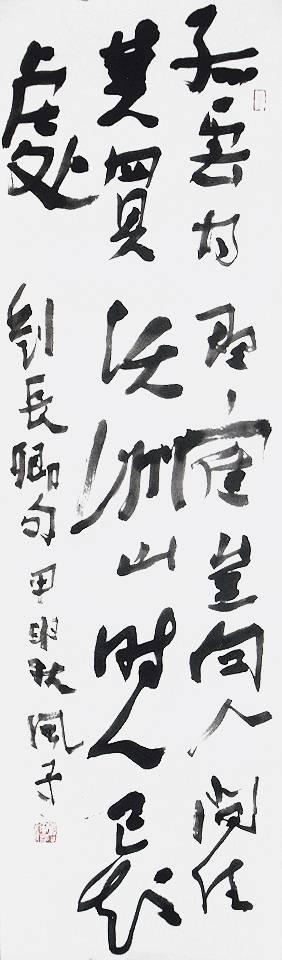 孤雲将野寉豈向人间住
莫買沃洲山时人已知
處
劉長卿句甲申秋風子